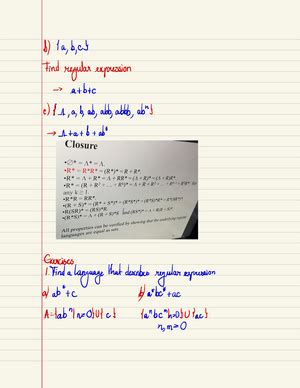 b) {a, b, c}
Find regular expression
→ a+b+c
c) {Λ, a, b, ab, abb, abbb, abⁿ}
→ Λ+a+b+ab*
Closure
•∅* = Λ* = Λ.
•R* = R*R* = (R*)* = R + R*.
•R* = Λ + R* = Λ + RR* = (Λ + R)* = (Λ + R)R*
any k ≥ 1.
•R*R = RR*.
•R(SR)* = (RS)*R.
All properties can be verified by showing that the underlying regular
languages are equal as sets
Exercises
1. Find a language that describes regular expression
a) ab* + c b) a*bc* + ac
A={abⁿ| n≥0}U{c} {aⁿbcᵐ| n≥0}U{ac}
n, m≥0